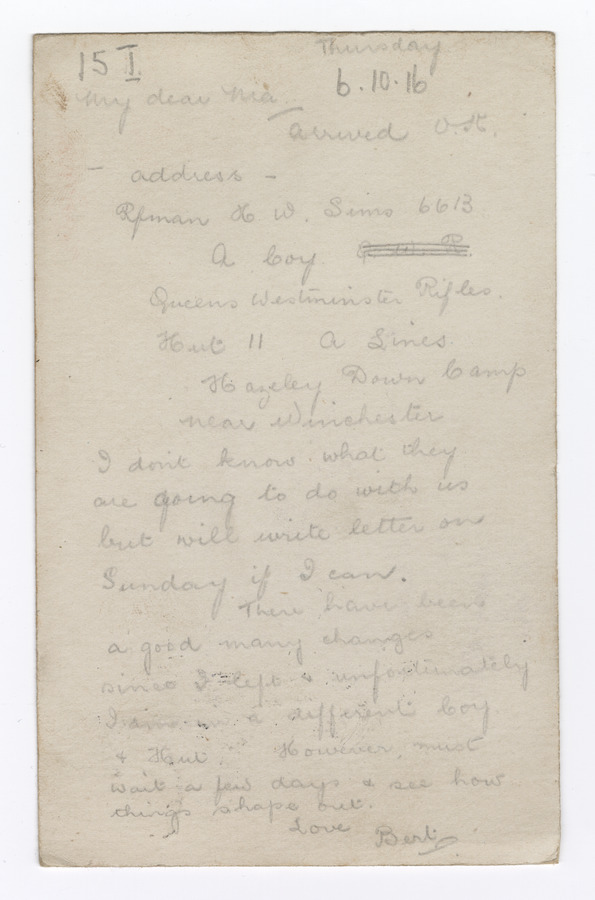 Thursday
15 I
6.10.16
My dear Ma
arrived O.K.
- address -
Rfman H W. Sims 6613
A Coy. Q. W. R.
Queens Westminster Rifles.
Hut 11 A Lines.
Hazeley Down Camp
near Winchester
I don't know what they
are going to do with us
but will write letter on
Sunday if I can.
There have been
a good many changes
since I left & unfortunately
I am in a different Coy
& Hut. However must
wait a few days & see how
things shape out.
Love
Bert